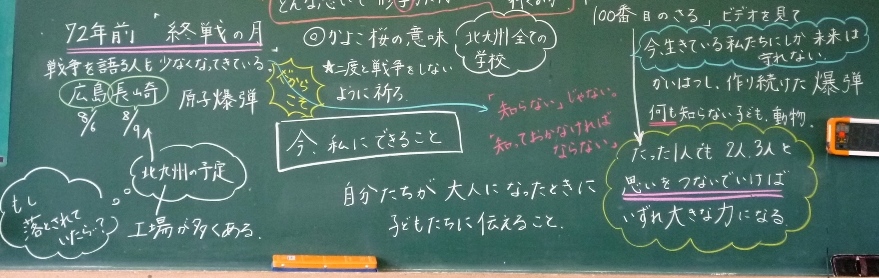 72年前 「終戦の月」
戦争を語る人も少なくなってきている。
広島 長崎 原子爆弾
8/6 8/9
北九州の予定
工場が多くある。
もし
落とされて
いたら…?
だから
こそ
◎かよこ桜の意味
北九州全ての
学校
★二度と戦争をしない
ように祈る
今、私にできること
「知らない」じゃない。
「知っておかなければ
ならない」
自分たちが 大人になったときに
子どもたちに伝えること。
「100番目のさる」ビデオを見て
今、生きている私たちにしか未来は
守れない
かいはつし、作り続けた爆弾
何も知らない子ども、動物。
たった1人でも 2人、3人と
思いをつないでいけば
いずれ大きな力になる。